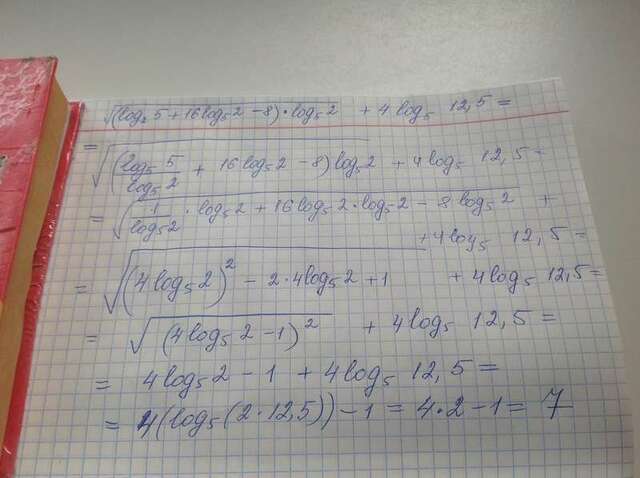 √((log₂ 5 + 16 log₅ 2 − 8) · log₅ 2) + 4 log₅ 12,5 =
= √((log₅ 5 / log₅ 2 + 16 log₅ 2 − 8) log₅ 2) + 4 log₅ 12,5 =
= √(1 / log₅ 2 · log₅ 2 + 16 log₅ 2 · log₅ 2 − 8 log₅ 2) +
+ 4 log₅ 12,5 =
= √((4 log₅ 2)² − 2 · 4 log₅ 2 + 1) + 4 log₅ 12,5 =
= √((4 log₅ 2 − 1)²) + 4 log₅ 12,5 =
= 4 log₅ 2 − 1 + 4 log₅ 12,5 =
= 4(log₅ (2 · 12,5)) − 1 = 4 · 2 − 1 = 7